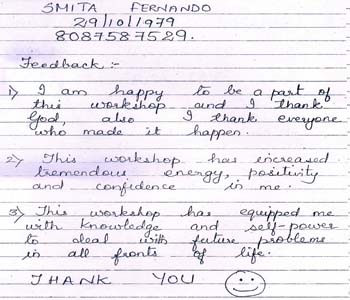 SMITA FERNANDO
29/10/1979
8087587529.
Feedback :-
1) I am happy to be a part of
this workshop and I thank
God, also I thank everyone
who made it happen.
2) This workshop has increased
tremendous energy, positivity
and confidence in me.
3) This workshop has equipped me
with knowledge and self-power
to deal with future problems
in all fronts of life.
THANK YOU